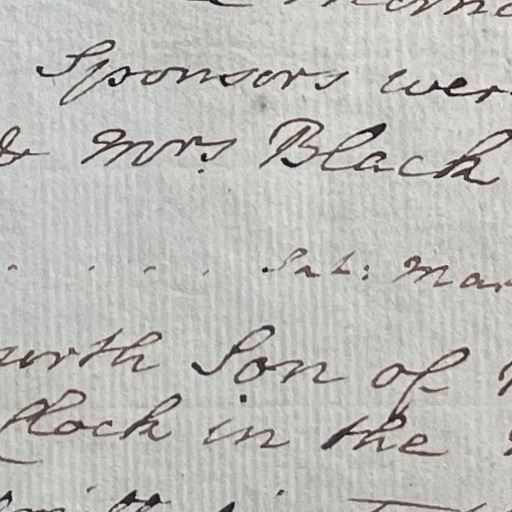 Sponsors wer
& Mrs Black
. . . . Sat: Mar
urth Son of
Clock in the